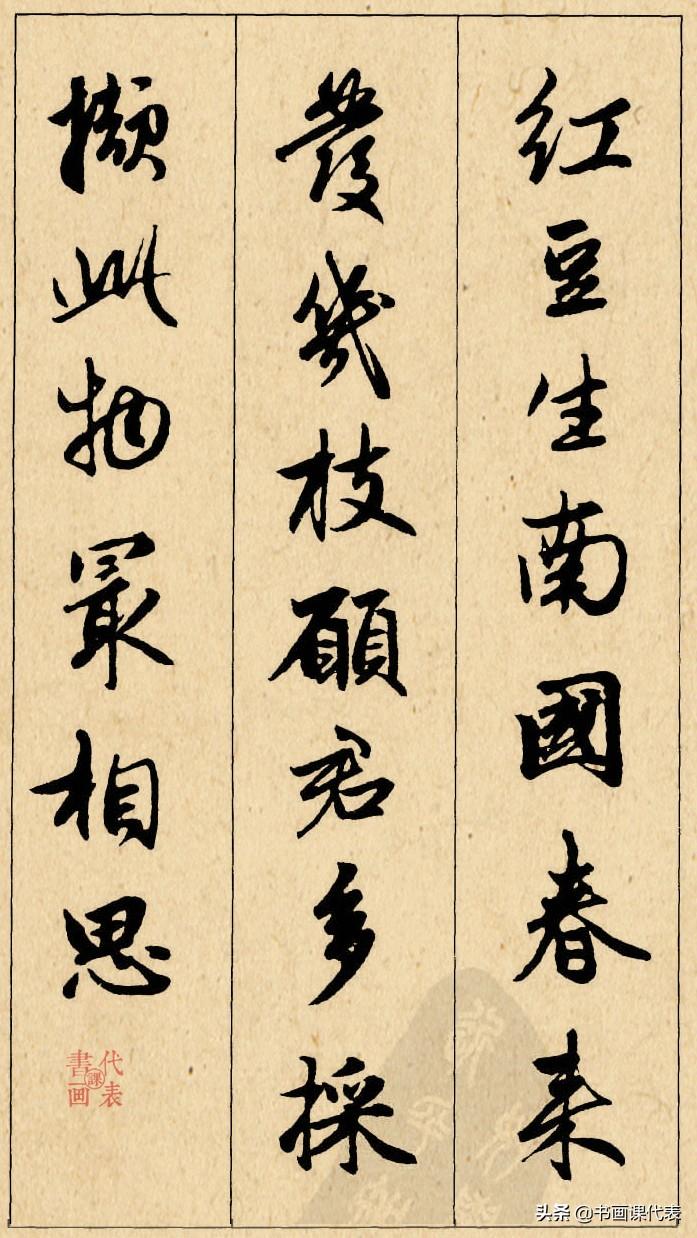 红豆生南國春来
發幾枝願君多採
擷此物最相思
代表
書画
課
头条 @书画课代表